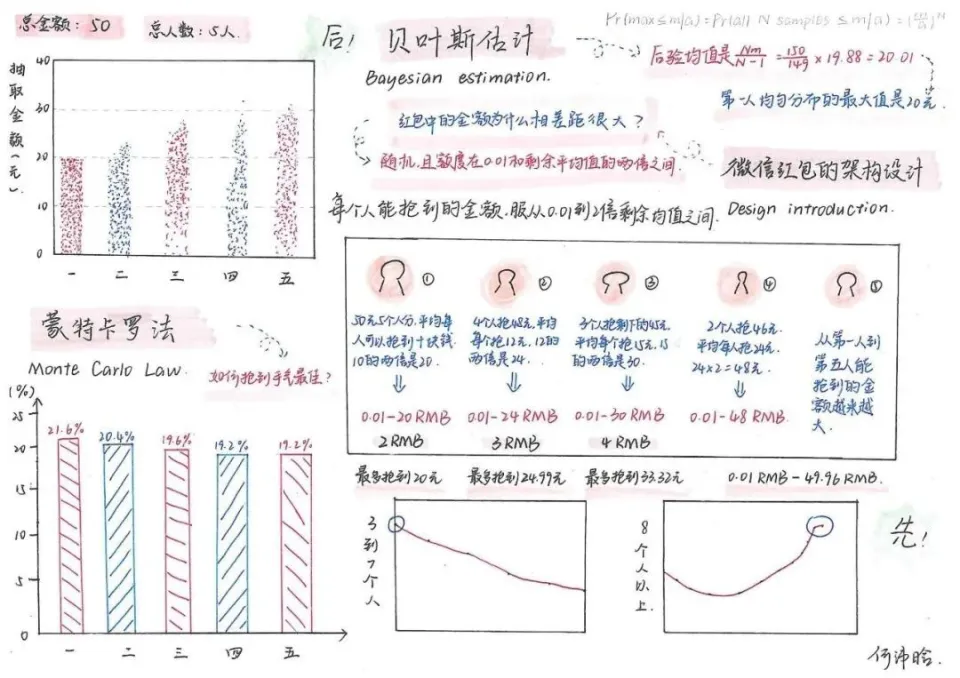 总金额：50
总人数：5人.
抽取金额（元）
40
30
20
10
0
一 二 三 四 五
后！
贝叶斯估计
Bayesian estimation.
Pr(max≤m|a)=Pr(all N samples ≤m|a)=
后验均值是Nm/N-1=150/149×19.88=20.01
第一人均匀分布的最大值是20元.
红包中的金额为什么相差距很大？
随机,且额度在0.01和剩余平均值的两倍之间.
微信红包的架构设计
Design introduction.
每个人能抢到的金额.服从0.01到2倍剩余均值之间.
①
50元5个人分,平均每
人可以抢到十块钱
10的两倍是20.
0.01-20 RMB
2 RMB
②
4个人抢48元.平均
每个抢12元.12的
两倍是24.
0.01-24 RMB
3 RMB
③
3个人抢剩下的45元.
平均每个抢15元.15
的两倍是30.
0.01-30 RMB
4 RMB
④
2个人抢46元.
平均每人抢24元
24×2=48元.
0.01-48 RMB.
⑤
从第一人到
第五人能
抢到的金
额越来越
大.
最多抢到20元
最多抢到24.99元
最多抢到33.32元
0.01 RMB-49.96 RMB.
蒙特卡罗法
Monte Carlo Law.
如何抢到手气最佳？
(%)
25
20
15
10
5
0
21.6%
20.4%
19.6%
19.2%
19.2%
一 二 三 四 五
3到7个人
8个人以上.
先！